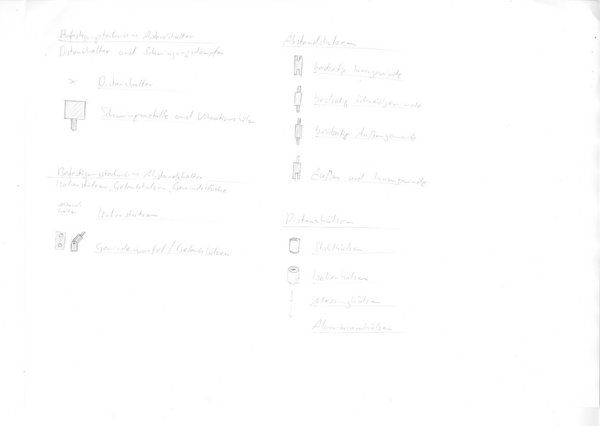 Befestigungstechnik Abstandshalter
Distanzhalter und Schwingungsdämpfer
x Distanzhalter
und
Befestigungstechnik Abstandshalter
Isolierstützen, Gelenkbolzen, Gewindestücke
Isolierstützen
Gewindewürfel / Gelenkbolzen
Abstandsbolzen
beidseitig Innengewinde
beidseitig
beidseitig Außengewinde
Außen und Innengewinde
Distanzhülsen
Stahlhülsen
Isolierhülsen
Messinghülsen
Aluminiumhülsen